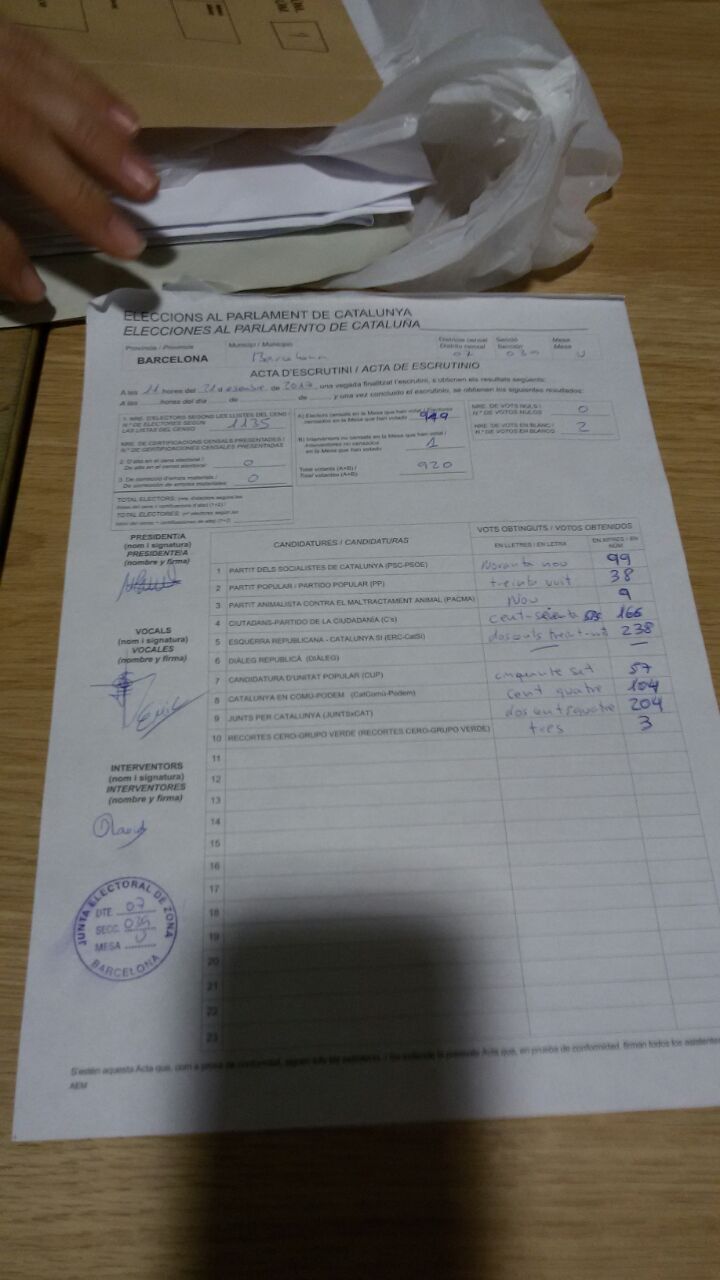 ELECCIONS AL PARLAMENT DE CATALUNYA
ELECCIONES AL PARLAMENTO DE CATALUÑA
Província / Provincia Municipi / Municipio Districte censal Secció Mesa
Distrito censal Sección Mesa
BARCELONA Barcelona 07 039 U
ACTA D'ESCRUTINI / ACTA DE ESCRUTINIO
A les 11 hores del 21 desembre de 2017, una vegada finalitzat l'escrutini, s'obtenen els resultats següents:
A las hores del día de de y una vez concluido el escrutinio, se obtienen los siguientes resultados:
1. NRE. D'ELECTORS SEGONS LES LLISTES DEL CENS /
N.º DE ELECTORES SEGÚN
LAS LISTAS DEL CENSO 1135
NRE. DE CERTIFICACIONS CENSALS PRESENTADES /
N.º DE CERTIFICACIONES CENSALES PRESENTADAS
2. D'alta en el cens electoral /
De alta en el censo electoral 0
3. De correcció d'errors materials /
De corrección de errores materiales 0
TOTAL ELECTORS:
TOTAL ELECTORES:
A) Electors censats en la Mesa que han votat /
censados en la Mesa que han votado 919
B) Interventors no censats en la Mesa que han votat /
Interventores no censados
en la Mesa que han votado 1
Total votants (A+B) /
Total votantes (A+B) 920
NRE. DE VOTS NULS /
N.º DE VOTOS NULOS 0
NRE. DE VOTS EN BLANC /
N.º DE VOTOS EN BLANCO 2
PRESIDENT/A
(nom i signatura)
PRESIDENTE/A
(nombre y firma)
VOCALS
(nom i signatura)
VOCALES
(nombre y firma)
INTERVENTORS
(nom i signatura)
INTERVENTORES
(nombre y firma)
CANDIDATURES / CANDIDATURAS VOTS OBTINGUTS / VOTOS OBTENIDOS
EN LLETRES / EN LETRA EN XIFRES / EN NÚM
1 PARTIT DELS SOCIALISTES DE CATALUNYA (PSC-PSOE) Noranta nou 99
2 PARTIT POPULAR / PARTIDO POPULAR (PP) treinta vuit 38
3 PARTIT ANIMALISTA CONTRA EL MALTRACTAMENT ANIMAL (PACMA) Nou 9
4 CIUTADANS-PARTIDO DE LA CIUDADANÍA (C's) cent-seixanta sis 166
5 ESQUERRA REPUBLICANA - CATALUNYA SÍ (ERC-CatSí) 238
6 DIÀLEG REPUBLICÀ (DIÀLEG) — —
7 CANDIDATURA D'UNITAT POPULAR (CUP) cinquanta set 57
8 CATALUNYA EN COMÚ-PODEM (CatComú-Podem) cent quatre 104
9 JUNTS PER CATALUNYA (JUNTSxCAT) dos cents quatre 204
10 RECORTES CERO-GRUPO VERDE (RECORTES CERO-GRUPO VERDE) tres 3
11
12
13
14
15
16
17
18
19
20
21
22
23
JUNTA ELECTORAL DE ZONA
DTE. 07
SECC. 039
MESA U
BARCELONA
S'estén aquesta Acta que, com a prova de conformitat, signen tots els assistents. / Se extiende la presente Acta que, en prueba de conformidad, firman todos los asistentes
AEM